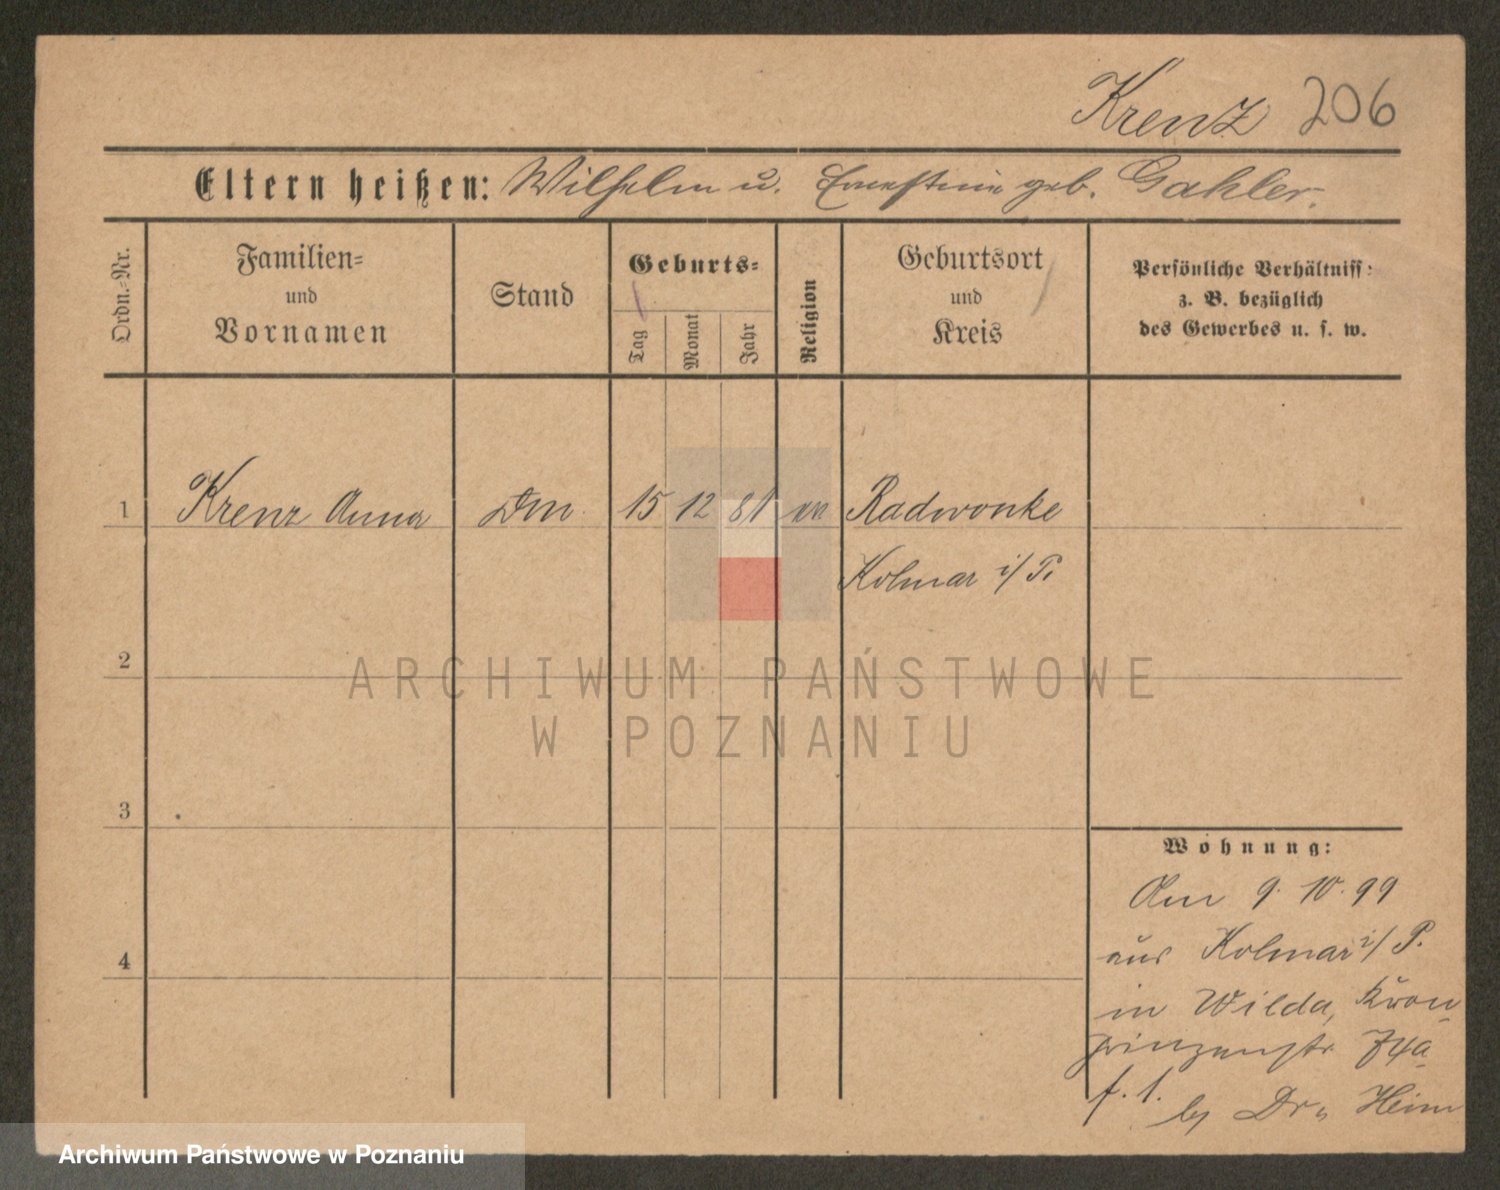 Krenz 206
Eltern heißen: Wilhelm u. Ernestine geb. Gahler.
Ordn.-Nr.
Familien- und Vornamen
Stand
Geburts-
Tag
Monat
Jahr
Religion
Geburtsort und Kreis
Persönliche Verhältniss:
z. B. bezüglich
des Gewerbes u. s. w.
1 Krenz Anna Dm 15 12 81 Radwonke
Kolmar i/P.
2
3
4
Wohnung:
Am 9. 10. 99
aus Kolmar i/P.
in Wilda, Kron-
prinzenstr 74a
f. 1.
by Dr. Heim
ARCHIWUM PAŃSTWOWE
W POZNANIU
Archiwum Państwowe w Poznaniu